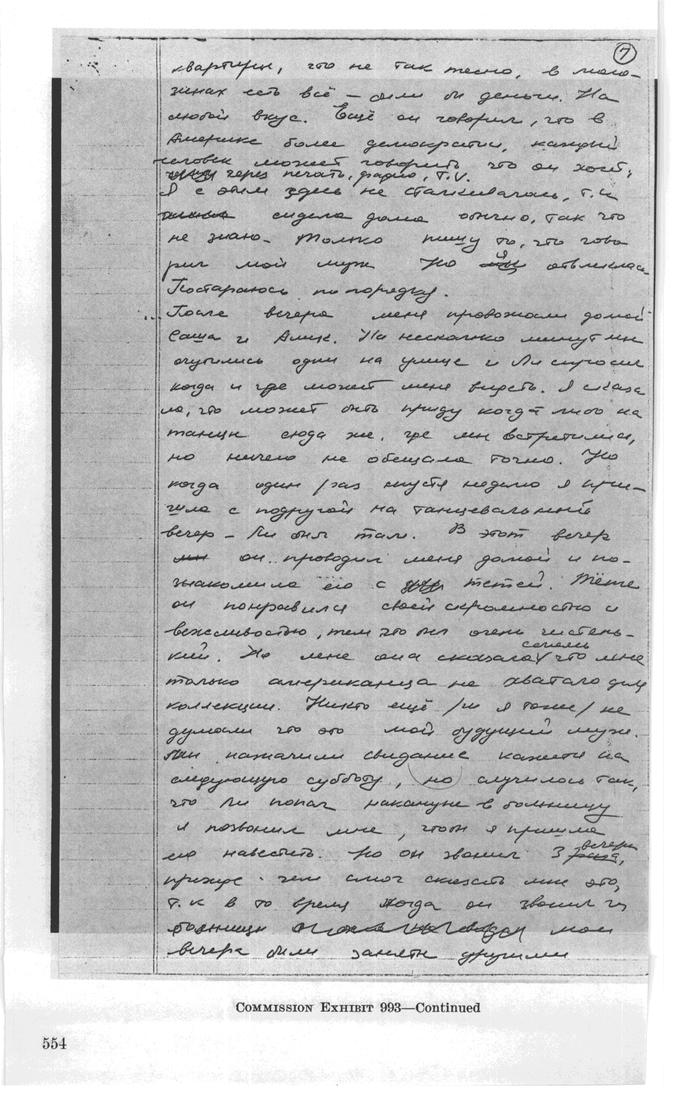 7
квартиры, что не так тесно, в мага-
зинах есть всё – были бы деньги. На
любой вкус. Ещё он говорил, что в
Америке более демократии, каждый
человек может говорить что он хочет,
через печать, радио, T.V.
Я с этим здесь не сталкивалась, т.к
сидела дома обычно, так что
не знаю. Только пишу то, что гово
рил мой муж Но я отвлеклась
Постараюсь по порядку.
После вечера меня провожали домой
Саша и Алик. На несколько минут мы
очутились одни на улице и Ли спросил
когда и где может меня видеть. Я сказа
ла, что может быть приду когда либо на
танцы сюда же, где мы встретились,
но ничего не обещала точно. Но
когда один раз спустя неделю я при-
шла с подругой на танцевальный
вечер – Ли был там. В этот вечер
он проводил меня домой и по-
знакомила его с тётей. Тёте
он понравился своей скромностью и
вежливостью, тем что был очень чистень-
кий. Но мне она сказала смеясь что мне
только американца не хватало для
коллекции. Никто ещё /и я тоже/ не
думали что это мой будущий муж.
Мы назначили свидание кажется на
следующую субботу, но случилось так,
что Ли попал накануне в больницу
и позвонил мне, чтобы я пришла
его навестить. Но он звонил 3 вечера,
прежде чем смог сказать мне это,
т.к в то время когда он звонил из
больницы мои
вечера были заняты другими
COMMISSION EXHIBIT 993—Continued
554